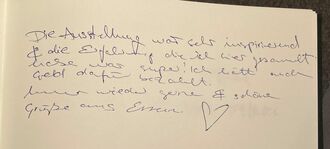 Die Ausstellung war sehr inspirierend
& die Erfahrung die ich hier gesammelt
habe war super! Ich hätt auch
Geld dafür bezahlt.
Immer wieder gerne & schöne
Grüße aus Essen.